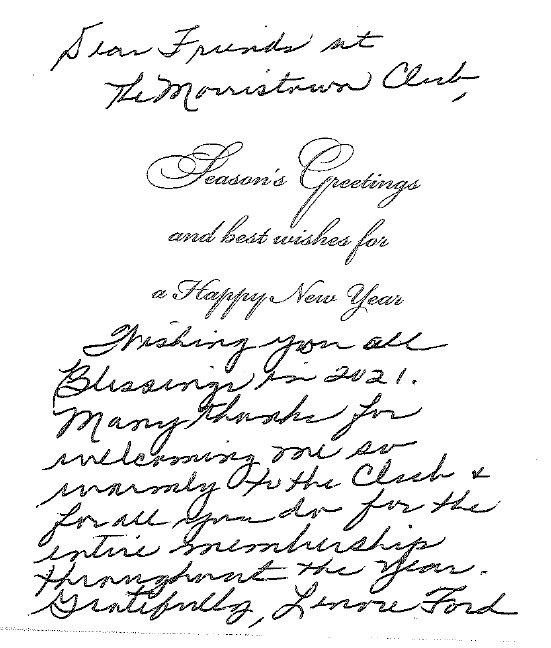 Dear Friends at
The Morristown Club,
Season's Greetings
and best wishes for
a Happy New Year
Wishing you all
Blessings in 2021.
Many thanks for
welcoming me so
warmly to the Club &
for all you do for the
entire membership
throughout the year.
Gratefully, Lenore Ford